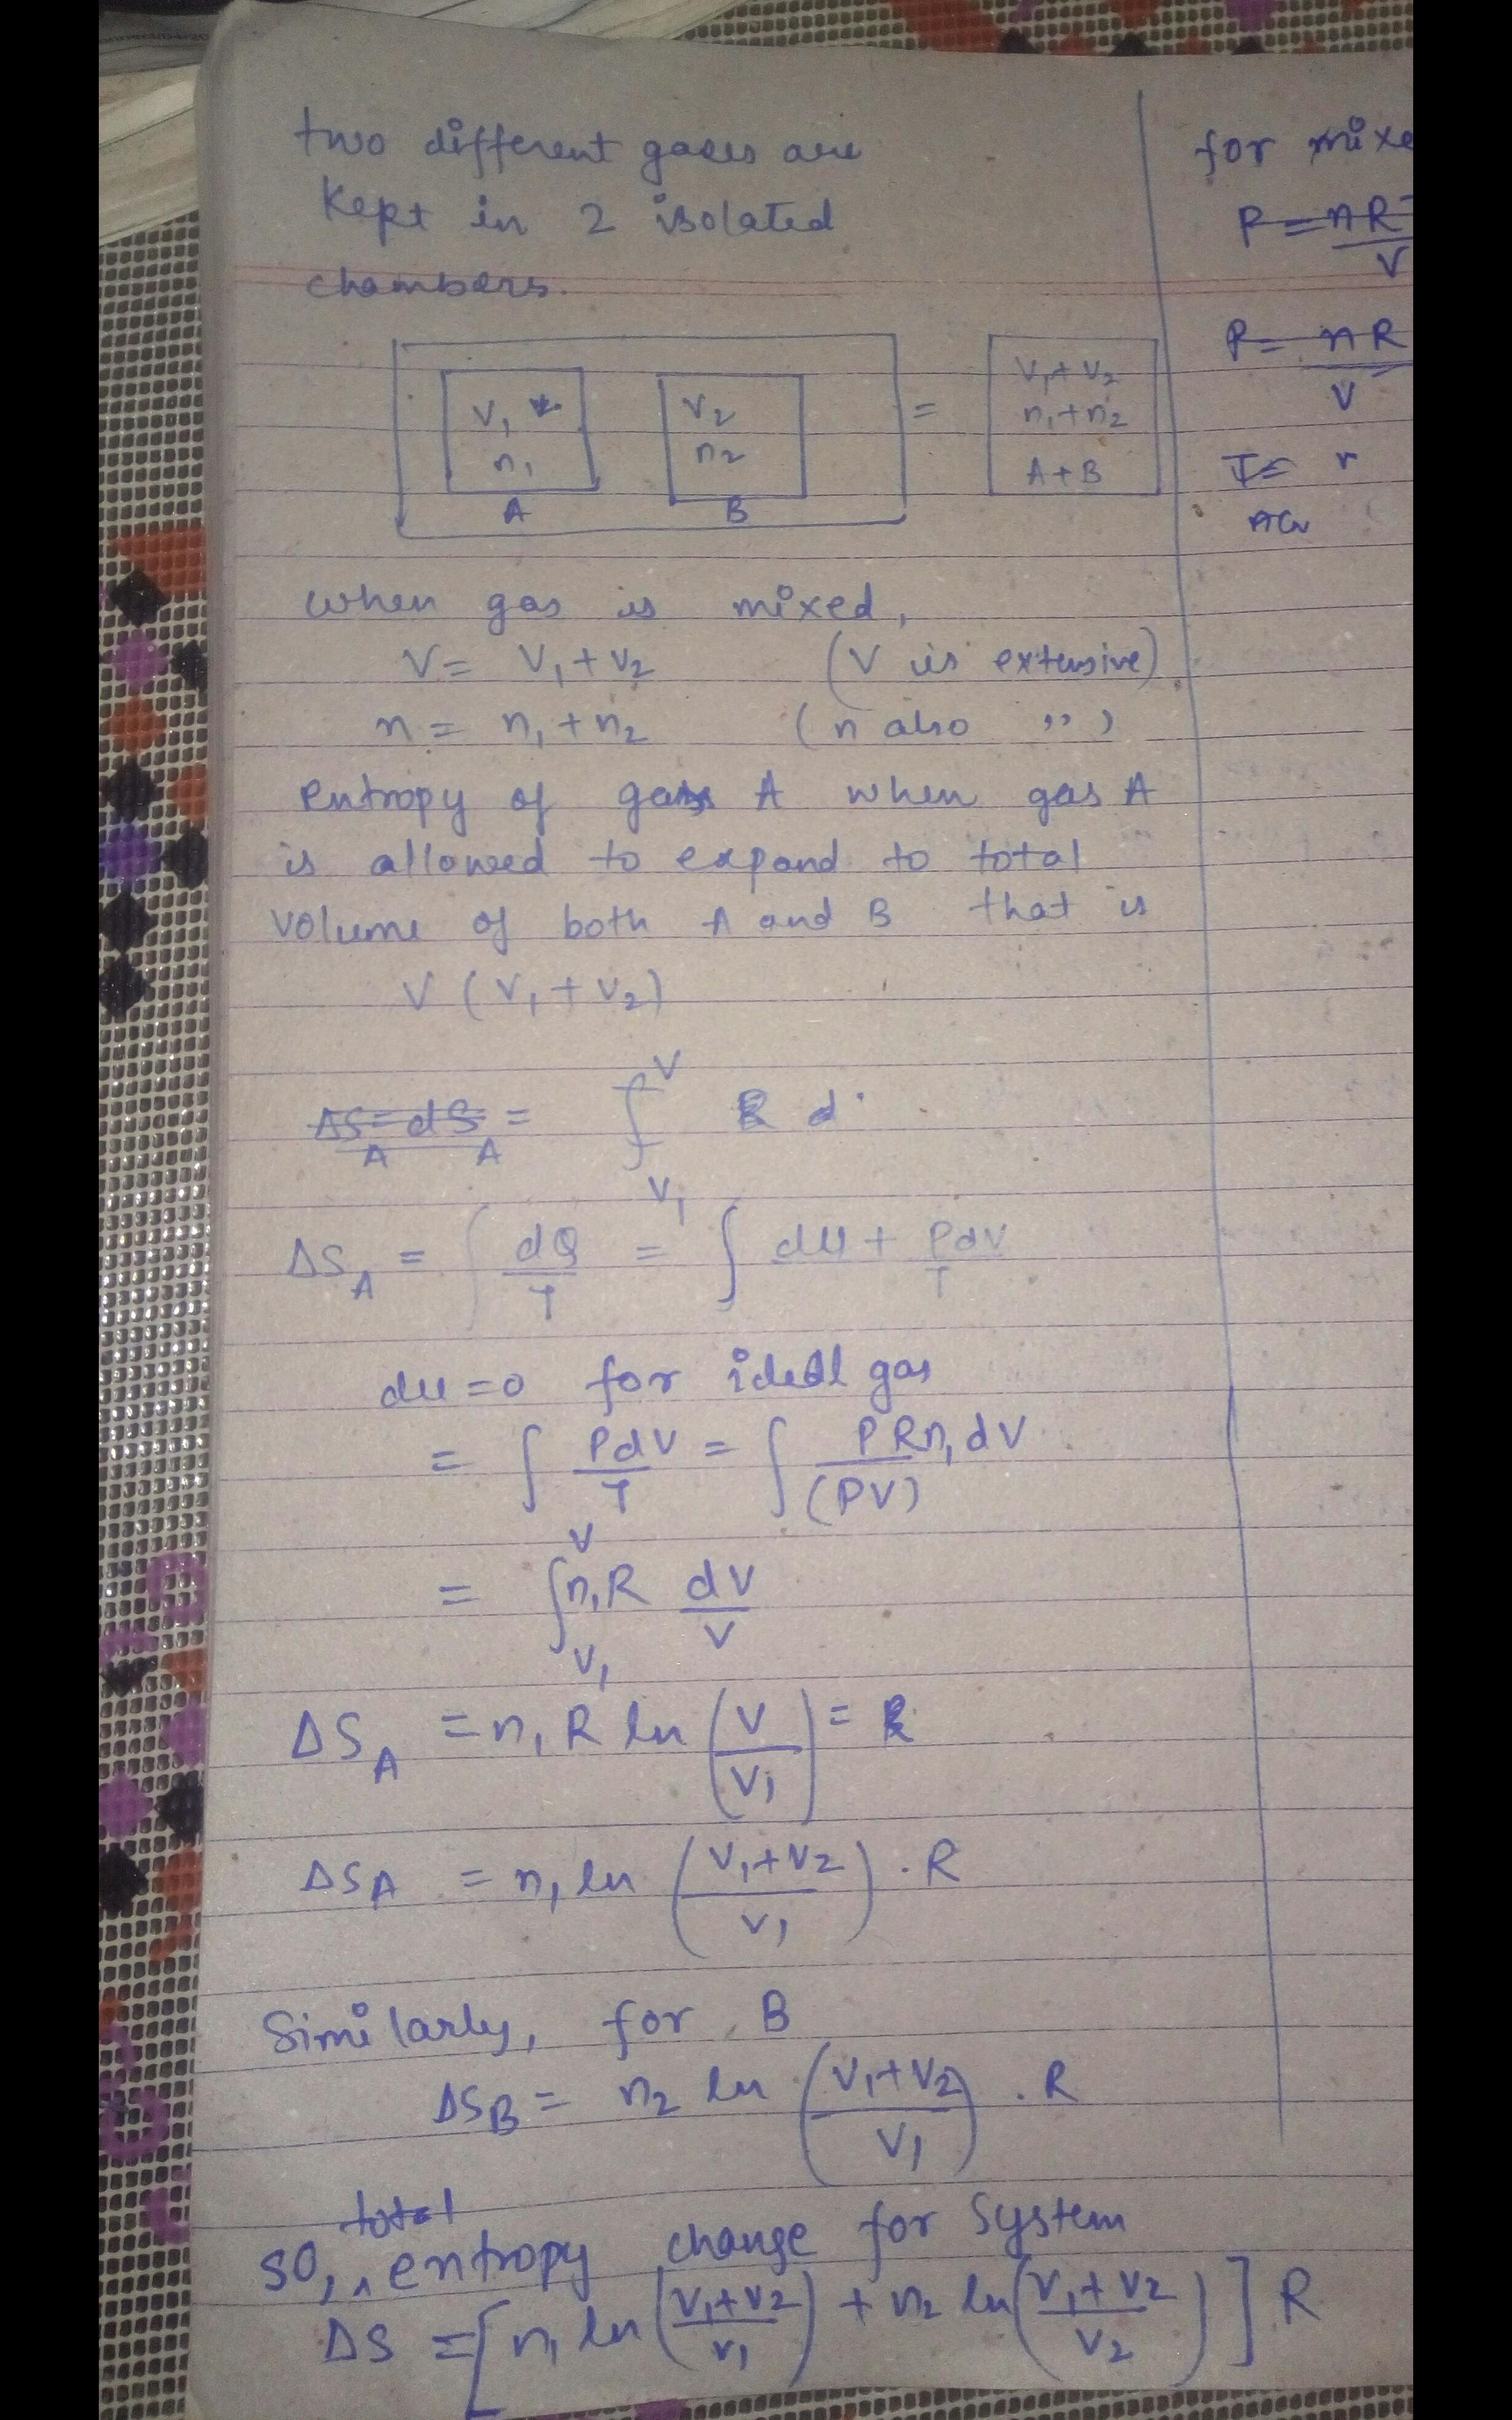 two different gases are
kept in 2 isolated
chambers.
V₁
n₁
A
V₂
n₂
B
=
V₁+V₂
n₁+n₂
A+B
when gas is mixed,
V = V₁+V₂ (V is extensive)
n = n₁+n₂ (n also ,, )
entropy of gas A when gas A
is allowed to expand to total
volume of both A and B that is
V (V₁+V₂)
ΔS_A = dS_A = ∫_{V₁}^{V} R d
ΔS_A = ∫ dQ/T = ∫ du + PdV/T
du=0 for ideal gas
= ∫ PdV/T = ∫ PRn₁dV/(PV)
= ∫_{V₁}^{V} n₁R dV/V
ΔS_A = n₁R ln (V/V₁) = R
ΔS_A = n₁ ln ((V₁+V₂)/V₁) . R
Similarly, for B
ΔS_B = n₂ ln ((V₁+V₂)/V₁) . R
so, total entropy change for system
ΔS = [n₁ ln ((V₁+V₂)/V₁) + n₂ ln ((V₁+V₂)/V₂)] R
for mixe
P = nR/V
P = nR/V